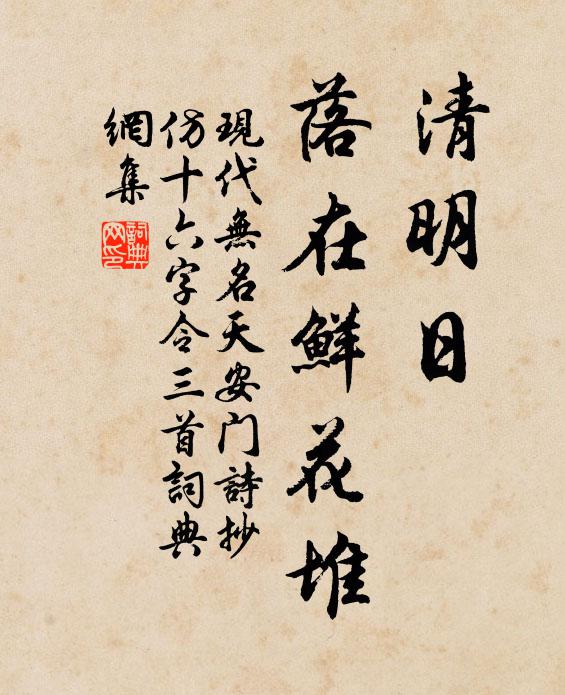 清明日
落在鮮花堆
現代無名天安门詩抄
仿十六字令三首詞典
網集
詞典网印